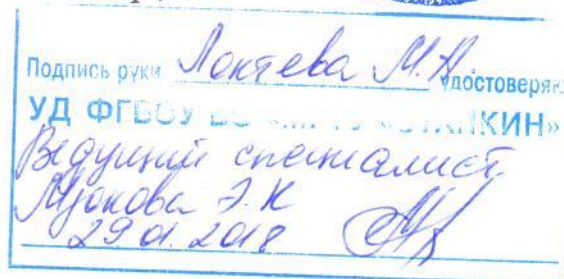 Подпись руки Локтева М.А. удостоверяю
УД ФГБОУ ВО «МГТУ «СТАНКИН»
Ведущий специалист
Э.К
29.01.2018